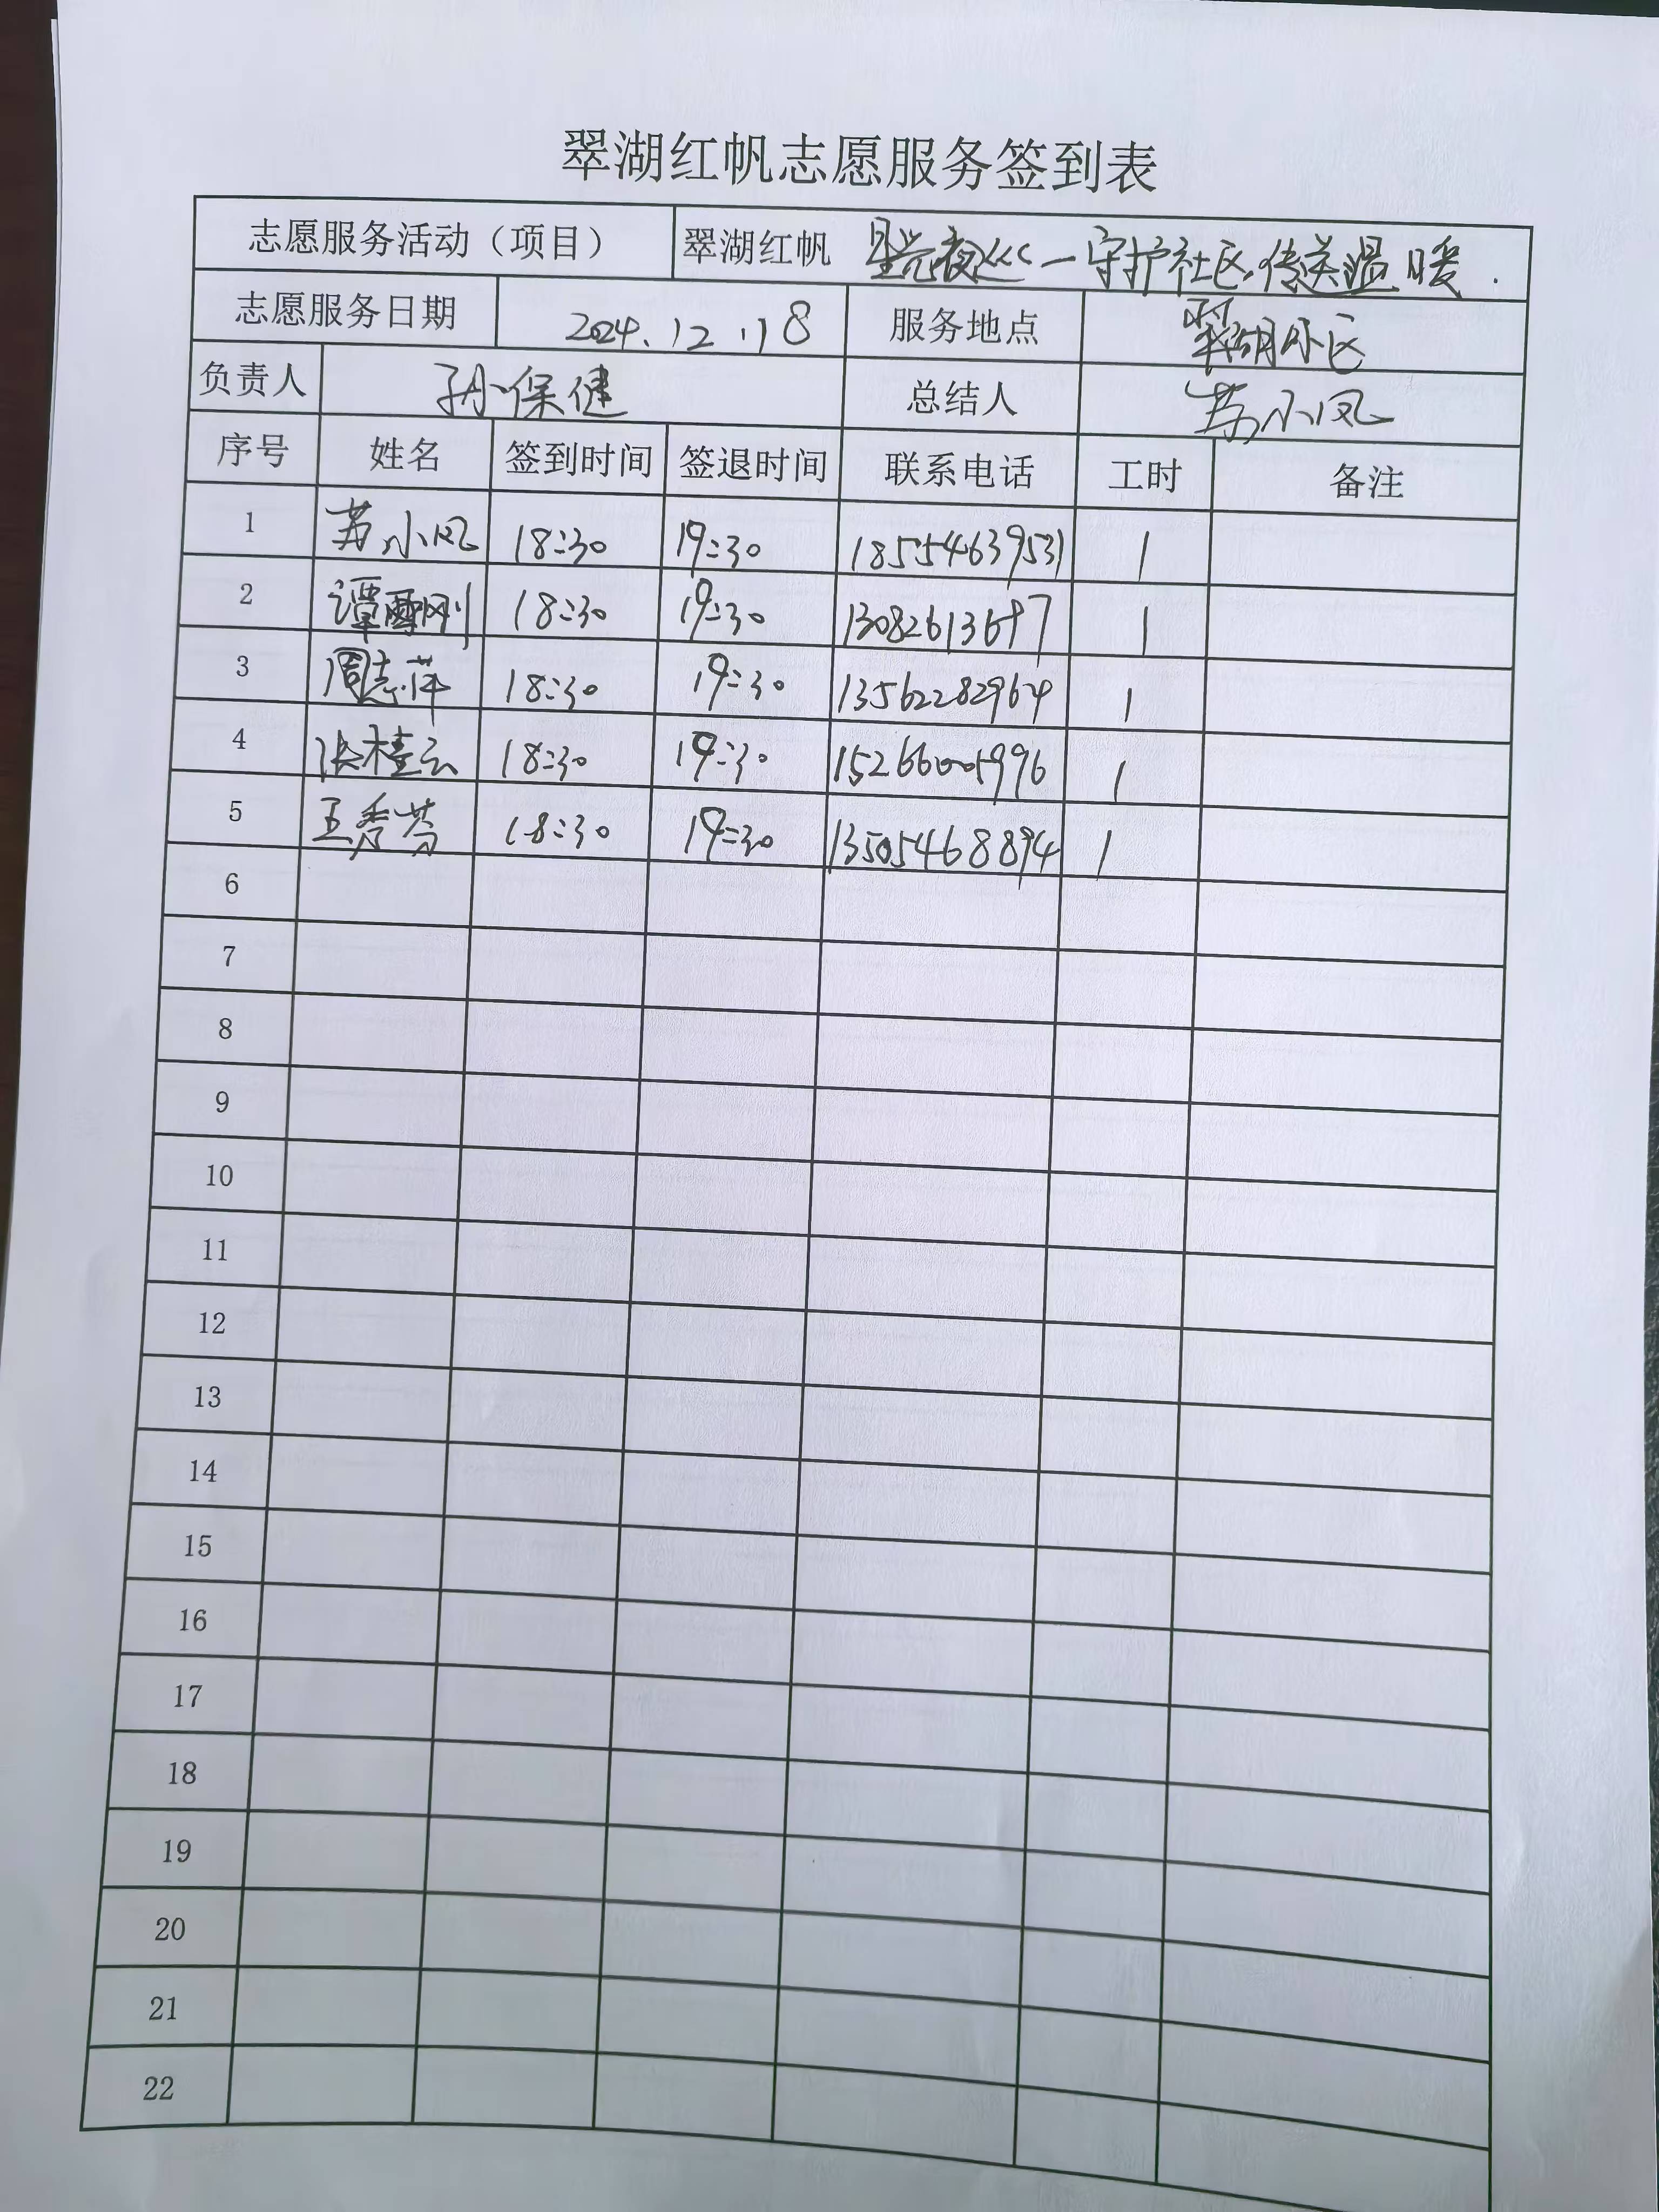 翠湖红帆志愿服务签到表
志愿服务活动（项目） 翠湖红帆 星光夜巡一守护社区,传送温暖.
志愿服务日期 2024.12.18 服务地点 翠湖小区
负责人 孙保健 总结人 苏小凤
序号 姓名 签到时间 签退时间 联系电话 工时 备注
1 苏小凤 18:30 19:30 18554639531 1
2 谭雪刚 18:30 19:30 1
3 周志萍 18:30 19:30 13562282964 1
4 张桂云 18:30 19:30 15266001996 1
5 王秀芬 18:30 19:30 13505468894 1
6
7
8
9
10
11
12
13
14
15
16
17
18
19
20
21
22